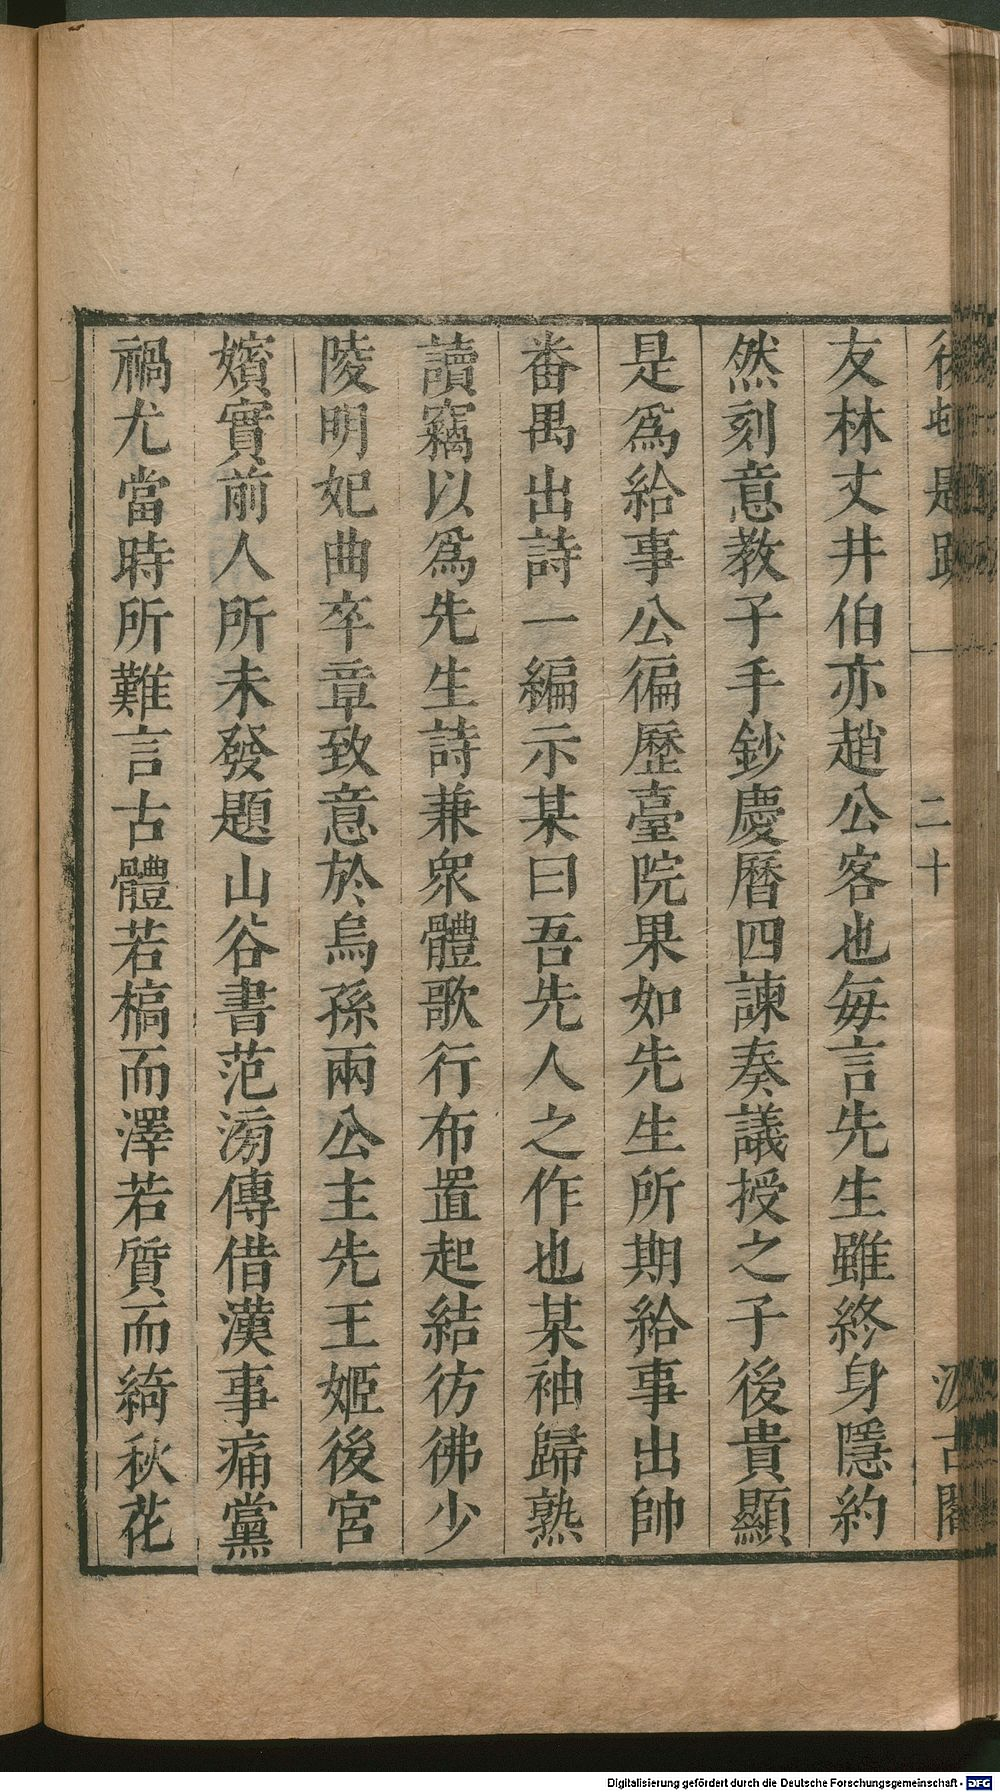 後村題跋 二十 汲古閣
友林丈井伯亦趙公客也每言先生雖終身隱約
然刻意教子手鈔慶曆四諫奏議授之子後貴顯
是爲給事公徧歷臺院果如先生所期給事出帥
番禺出詩一編示某曰吾先人之作也某袖歸熟
讀竊以爲先生詩兼衆體歌行布置起結彷彿少
陵明妃曲卒章致意於烏孫兩公主先王姬後宮
嬪實前人所未發題山谷書范滂傳借漢事痛黨
禍尤當時所難言古體若槁而澤若質而綺秋花
Digitalisierung gefördert durch die Deutsche Forschungsgemeinschaft - DFG